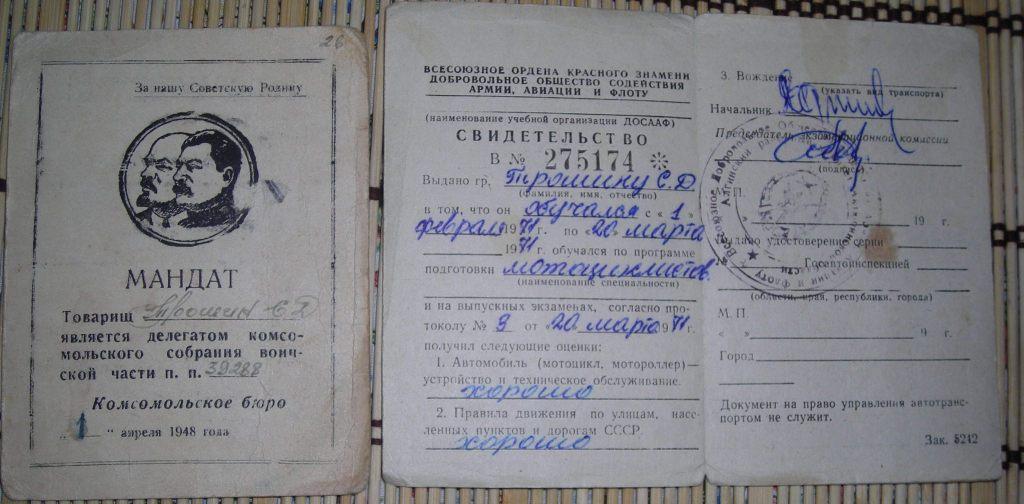 26
За нашу Советскую Родину
МАНДАТ
Товарищ Трошин С Д
является делегатом комсо-
мольского собрания воин-
ской части п. п. 39288
Комсомольское бюро
„ 1 " апреля 1948 года
ВСЕСОЮЗНОЕ ОРДЕНА КРАСНОГО ЗНАМЕНИ
ДОБРОВОЛЬНОЕ ОБЩЕСТВО СОДЕЙСТВИЯ
АРМИИ, АВИАЦИИ И ФЛОТУ
(наименование учебной организации ДОСААФ)
СВИДЕТЕЛЬСТВО
В № 275174 *
Выдано гр. Трошину С.Д.
(фамилия, имя, отчество)
в том, что он обучался с « 1 »
февраля 1971 г. по «20» марта
1971 г. обучался по программе
подготовки мотоциклистов
(наименование специальности)
и на выпускных экзаменах, согласно про-
токолу № 9 от «20» марта 1971
получил следующие оценки:
1. Автомобиль (мотоцикл, мотороллер)—
устройство и техническое обслуживание.
хорошо
2. Правила движения по улицам, насе-
ленных пунктов и дорогам СССР.
хорошо
3. Вождение
(указать вид транспорта)
Начальник
Председатель экзаменационной комиссии
(подпись)
М. П.
19 г.
Выдано удостоверение серии
Госавтоинспекцией
(области, края, республики, города)
М. П.
« » 9 г.
Город
Документ на право управления автотранс-
портом не служит.
Зак. 5242